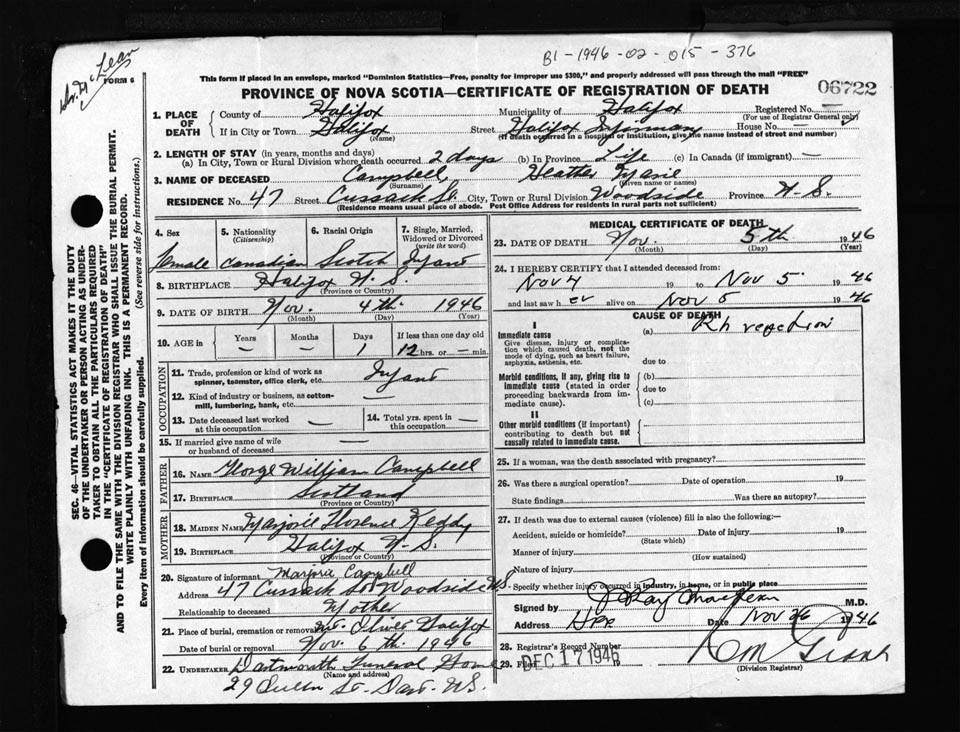 B1-1946-02-015-376
Dr. McLean
FORM 6
This form if placed in an envelope, marked "Dominion Statistics—Free, penalty for improper use $300," and properly addressed will pass through the mail "FREE"
PROVINCE OF NOVA SCOTIA—CERTIFICATE OF REGISTRATION OF DEATH
06722
1. PLACE OF DEATH
County of Halifax Municipality of Halifax Registered No. —
(For use of Registrar General only)
If in City or Town Halifax Street Halifax Infirmary House No.
(Name) (If death occurred in a hospital or institution, give the name instead of street and number)
2. LENGTH OF STAY (in years, months and days)
(a) In City, Town or Rural Division where death occurred 2 days (b) In Province Life (c) In Canada (if immigrant) —
3. NAME OF DECEASED Campbell, Heather Marie
(Surname) (Given name or names)
RESIDENCE No. 47 Street Cussack St. City, Town or Rural Division Woodside Province N. S.
(Residence means usual place of abode. Post Office Address for residents in rural parts not sufficient)
4. Sex 5. Nationality (Citizenship) 6. Racial Origin 7. Single, Married, Widowed or Divorced (write the word)
Female Canadian Scotch Infant
8. BIRTHPLACE Halifax N. S.
(Province or Country)
9. DATE OF BIRTH Nov. 4th. 1946
(Month) (Day) (Year)
10. AGE in Years Months Days If less than one day old
— — 1 12 hrs. or — min.
OCCUPATION
11. Trade, profession or kind of work as spinner, teamster, office clerk, etc. Infant
12. Kind of industry or business, as cotton-mill, lumbering, bank, etc. —
13. Date deceased last worked at this occupation — 14. Total yrs. spent in this occupation —
15. If married give name of wife or husband of deceased —
FATHER
16. NAME George William Campbell
17. BIRTHPLACE Scotland
(Province or Country)
MOTHER
18. MAIDEN NAME Marjorie Florence Keddy
19. BIRTHPLACE Halifax N. S.
(Province or Country)
20. Signature of informant Marjorie Campbell
Address 47 Cussack St. Woodside N.S.
Relationship to deceased Mother
21. Place of burial, cremation or removal Mt. Olivet Halifax
Date of burial or removal Nov. 6th. 1946
22. UNDERTAKER Dartmouth Funeral Home
(Name and address)
29 Queen St. Dart. N.S.
MEDICAL CERTIFICATE OF DEATH
23. DATE OF DEATH Nov. 5th 1946
(Month) (Day) (Year)
24. I HEREBY CERTIFY that I attended deceased from
Nov 4 19 to Nov 5 1946
and last saw her alive on Nov 5 1946
CAUSE OF DEATH
I
Immediate cause (a) Rh rejection
Give disease, injury or complication which caused death, not the mode of dying, such as heart failure, asphyxia, asthenia, etc.
due to
Morbid conditions, if any, giving rise to immediate cause (stated in order proceeding backwards from immediate cause). (b)
due to
(c)
II
Other morbid conditions (if important) contributing to death but not causally related to immediate cause.
25. If a woman, was the death associated with pregnancy?
26. Was there a surgical operation? Date of operation 19
State findings Was there an autopsy?
27. If death was due to external causes (violence) fill in also the following:—
Accident, suicide or homicide? Date of injury 19
(State which)
Manner of injury
(How sustained)
Nature of injury
Specify whether injury occurred in industry, in home, or in public place
Signed by J Ray MacLean M.D.
Address Hfx Date Nov 26 1946
28. Registrar's Record Number
29. Filed DEC 17 1946
(Division Registrar)
SEC. 46—VITAL STATISTICS ACT MAKES IT THE DUTY OF THE UNDERTAKER OR PERSON ACTING AS UNDERTAKER TO OBTAIN ALL THE PARTICULARS REQUIRED IN THE "CERTIFICATE OF REGISTRATION OF DEATH" AND TO FILE THE SAME WITH THE DIVISION REGISTRAR WHO SHALL ISSUE THE BURIAL PERMIT.
WRITE PLAINLY WITH UNFADING INK. THIS IS A PERMANENT RECORD.
Every item of information should be carefully supplied. (See reverse side for instructions.)